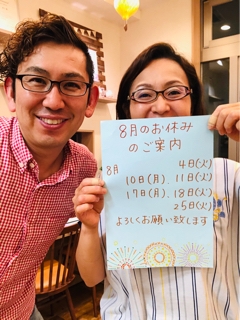 8月のお休み
のご案内
8月 4日(火)
10日(月)、11日(火)
17日(月)、18日(火)
25日(火)
よろしくお願い致します